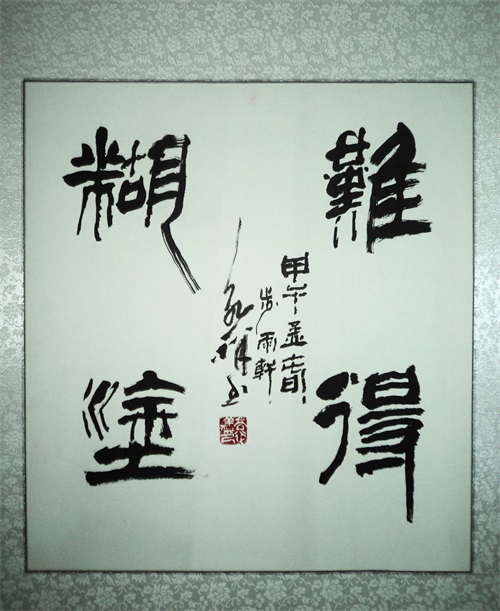 難得
糊塗
甲午孟春
步雨軒